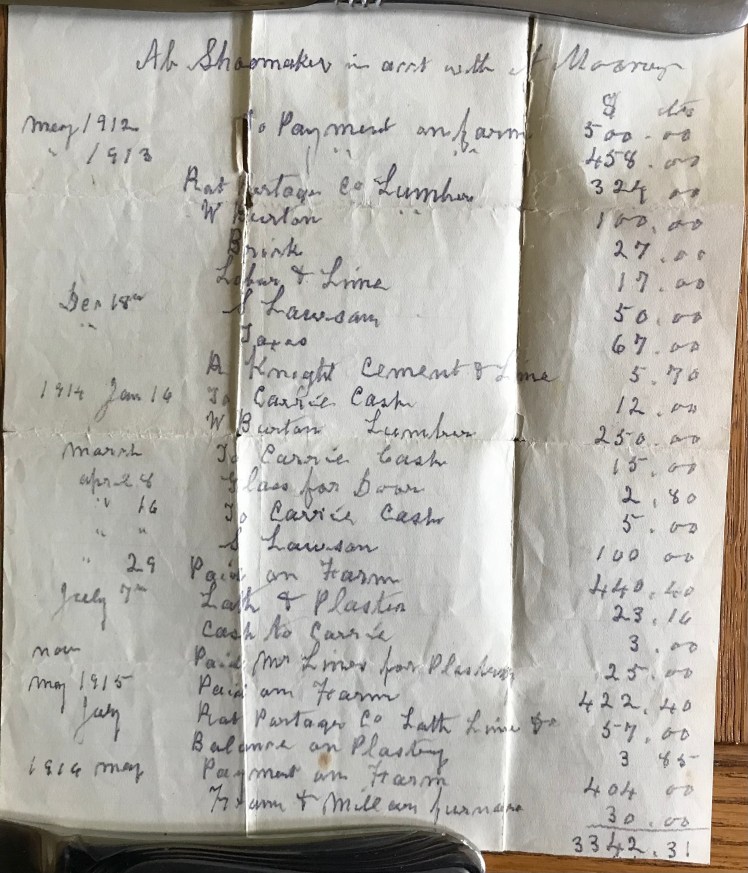 Ab Shoemaker in acct with A Mooney
$ cts
May 1912 To Payment on farm 500.00
" 1913 " " 458.00
Rat Portage Co Lumber 324 00
W Burton " 100.00
Brick 27.00
Labor & Lime 17.00
Dec 18th S Lawson 50.00
" Taxes 67.00
A Knight Cement & Lime 5.70
1914 Jan 16 To Carrie Cash 12.00
W Burton Lumber 250.00
March To Carrie Cash 15.00
April 8 Glass for Door 2.80
" 16 To Carrie Cash 5.00
" " S Lawson 100 00
" 29 Paid on Farm 440.40
July 7th Lath & Plaster 23.16
Cash to Carrie 3.00
Nov Paid Mr Lines for Plastering 25.00
May 1915 Paid on Farm 422.40
July Rat Portage Co Lath Lime &c 57.00
Balance on Plastering 3 85
1916 May Payment on Farm 404 00
& furnace 30.00
3342.31